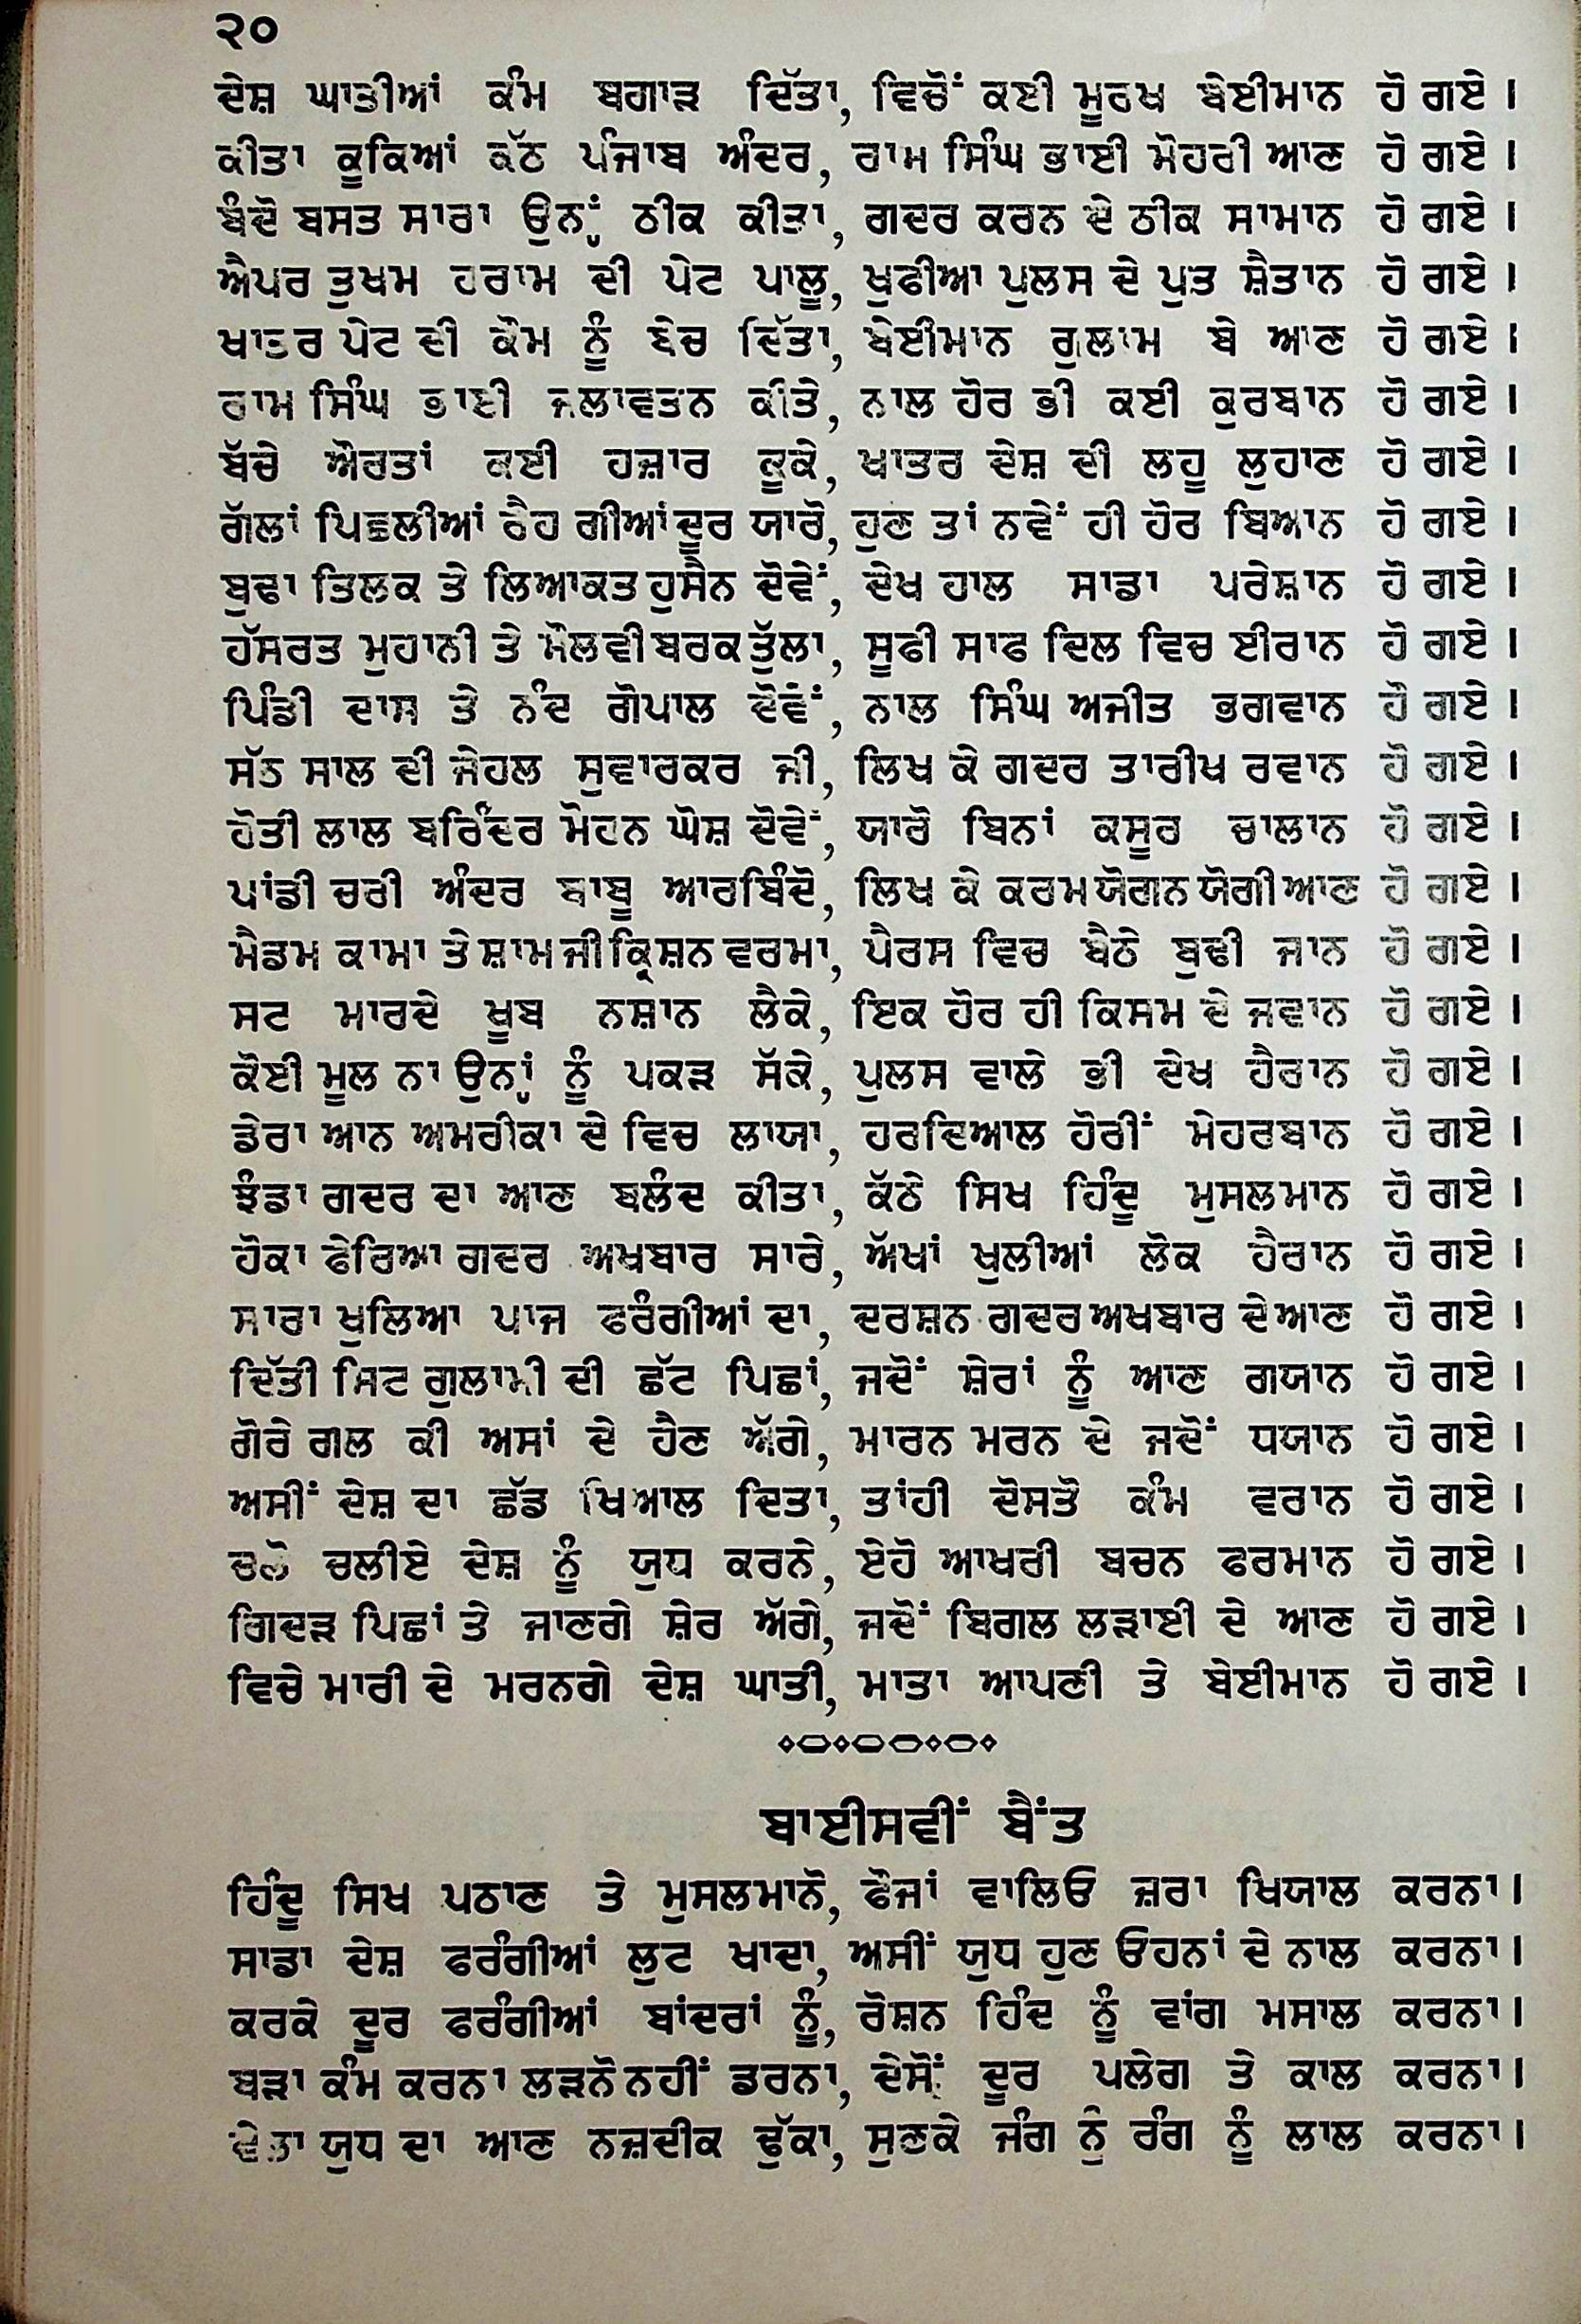 ੨੦
ਦੇਸ਼ ਘਾਤੀਆਂ ਕੰਮ ਬਗਾੜ ਦਿੱਤਾ, ਵਿਚੋਂ ਕਈ ਮੂਰਖ ਬੇਈਮਾਨ ਹੋ ਗਏ ।
ਕੀਤਾ ਕੂਕਿਆਂ ਕੱਠ ਪੰਜਾਬ ਅੰਦਰ, ਰਾਮ ਸਿੰਘ ਭਾਈ ਮੋਹਰੀ ਆਣ ਹੋ ਗਏ ।
ਬੰਦੋ ਬਸਤ ਸਾਰਾ ਉਨ੍ਹਾਂ ਠੀਕ ਕੀਤਾ, ਗਦਰ ਕਰਨ ਦੇ ਠੀਕ ਸਾਮਾਨ ਹੋ ਗਏ ।
ਐਪਰ ਤੁਖਮ ਹਰਾਮ ਦੀ ਪੇਟ ਪਾਲੂ, ਖੁਫੀਆ ਪੁਲਸ ਦੇ ਪੁਤ ਸ਼ੈਤਾਨ ਹੋ ਗਏ ।
ਖਾਤਰ ਪੇਟ ਦੀ ਕੌਮ ਨੂੰ ਬੇਚ ਦਿੱਤਾ, ਬੇਈਮਾਨ ਗੁਲਾਮ ਬੇ ਆਣ ਹੋ ਗਏ ।
ਰਾਮ ਸਿੰਘ ਭਾਈ ਜਲਾਵਤਨ ਕੀਤੇ, ਨਾਲ ਹੋਰ ਭੀ ਕਈ ਕੁਰਬਾਨ ਹੋ ਗਏ ।
ਬੱਚੇ ਔਰਤਾਂ ਕਈ ਹਜ਼ਾਰ ਕੂਕੇ, ਖਾਤਰ ਦੇਸ਼ ਦੀ ਲਹੂ ਲੁਹਾਣ ਹੋ ਗਏ ।
ਗੱਲਾਂ ਪਿਛਲੀਆਂ ਰੈਹ ਗੀਆਂ ਦੂਰ ਯਾਰੋ, ਹੁਣ ਤਾਂ ਨਵੇਂ ਹੀ ਹੋਰ ਬਿਆਨ ਹੋ ਗਏ ।
ਬੁਢਾ ਤਿਲਕ ਤੇ ਲਿਆਕਤ ਹੁਸੈਨ ਦੋਵੇਂ, ਦੇਖ ਹਾਲ ਸਾਡਾ ਪਰੇਸ਼ਾਨ ਹੋ ਗਏ ।
ਹੱਸਰਤ ਮੁਹਾਨੀ ਤੇ ਮੌਲਵੀ ਬਰਕਤੁੱਲਾ, ਸੂਫੀ ਸਾਫ ਦਿਲ ਵਿਚ ਈਰਾਨ ਹੋ ਗਏ ।
ਪਿੰਡੀ ਦਾਸ ਤੇ ਨੰਦ ਗੋਪਾਲ ਦੋਵੇਂ, ਨਾਲ ਸਿੰਘ ਅਜੀਤ ਭਗਵਾਨ ਹੋ ਗਏ ।
ਸੱਠ ਸਾਲ ਦੀ ਜੇਹਲ ਸੁਵਾਰਕਰ ਜੀ, ਲਿਖ ਕੇ ਗਦਰ ਤਾਰੀਖ ਰਵਾਨ ਹੋ ਗਏ ।
ਹੋਤੀ ਲਾਲ ਬਰਿੰਦਰ ਮੋਹਨ ਘੋਸ਼ ਦੋਵੇਂ, ਯਾਰੋ ਬਿਨਾਂ ਕਸੂਰ ਚਾਲਾਨ ਹੋ ਗਏ ।
ਪਾਂਡੀ ਚਰੀ ਅੰਦਰ ਬਾਬੂ ਆਰਬਿੰਦੋ, ਲਿਖ ਕੇ ਕਰਮ ਯੋਗਨ ਯੋਗੀ ਆਣ ਹੋ ਗਏ ।
ਮੈਡਮ ਕਾਮਾ ਤੇ ਸ਼ਾਮ ਜੀ ਕ੍ਰਿਸ਼ਨ ਵਰਮਾ, ਪੈਰਸ ਵਿਚ ਬੈਠੇ ਬੁਢੀ ਜਾਨ ਹੋ ਗਏ ।
ਸਟ ਮਾਰਦੇ ਖੂਬ ਨਸ਼ਾਨ ਲੈਕੇ, ਇਕ ਹੋਰ ਹੀ ਕਿਸਮ ਦੇ ਜਵਾਨ ਹੋ ਗਏ ।
ਕੋਈ ਮੂਲ ਨਾ ਉਨ੍ਹਾਂ ਨੂੰ ਪਕੜ ਸੱਕੇ, ਪੁਲਸ ਵਾਲੇ ਭੀ ਦੇਖ ਹੈਰਾਨ ਹੋ ਗਏ ।
ਡੇਰਾ ਆਨ ਅਮਰੀਕਾ ਦੇ ਵਿਚ ਲਾਯਾ, ਹਰਦਿਆਲ ਹੋਰੀਂ ਮੇਹਰਬਾਨ ਹੋ ਗਏ ।
ਝੰਡਾ ਗਦਰ ਦਾ ਆਣ ਬਲੰਦ ਕੀਤਾ, ਕੱਠੇ ਸਿਖ ਹਿੰਦੂ ਮੁਸਲਮਾਨ ਹੋ ਗਏ ।
ਹੋਕਾ ਫੇਰਿਆ ਗਦਰ ਅਖਬਾਰ ਸਾਰੇ, ਅੱਖਾਂ ਖੁਲੀਆਂ ਲੋਕ ਹੈਰਾਨ ਹੋ ਗਏ ।
ਸਾਰਾ ਖੁਲਿਆ ਪਾਜ ਫਰੰਗੀਆਂ ਦਾ, ਦਰਸ਼ਨ ਗਦਰ ਅਖਬਾਰ ਦੇ ਆਣ ਹੋ ਗਏ ।
ਦਿੱਤੀ ਸਿਟ ਗੁਲਾਮੀ ਦੀ ਛੱਟ ਪਿਛਾਂ, ਜਦੋਂ ਸ਼ੇਰਾਂ ਨੂੰ ਆਣ ਗਯਾਨ ਹੋ ਗਏ ।
ਗੋਰੇ ਗਲ ਕੀ ਅਸਾਂ ਦੇ ਹੈਣ ਅੱਗੇ, ਮਾਰਨ ਮਰਨ ਦੇ ਜਦੋਂ ਧਯਾਨ ਹੋ ਗਏ ।
ਅਸੀਂ ਦੇਸ਼ ਦਾ ਛੱਡ ਖਿਆਲ ਦਿਤਾ, ਤਾਂਹੀ ਦੋਸਤੋ ਕੰਮ ਵਰਾਨ ਹੋ ਗਏ ।
ਚਲੋ ਚਲੀਏ ਦੇਸ਼ ਨੂੰ ਯੁਧ ਕਰਨੇ, ਏਹੋ ਆਖਰੀ ਬਚਨ ਫਰਮਾਨ ਹੋ ਗਏ ।
ਗਿਦੜ ਪਿਛਾਂ ਤੇ ਜਾਣਗੇ ਸ਼ੇਰ ਅੱਗੇ, ਜਦੋਂ ਬਿਗਲ ਲੜਾਈ ਦੇ ਆਣ ਹੋ ਗਏ ।
ਵਿਚੇ ਮਾਰੀ ਦੇ ਮਰਨਗੇ ਦੇਸ਼ ਘਾਤੀ, ਮਾਤਾ ਆਪਣੀ ਤੇ ਬੇਈਮਾਨ ਹੋ ਗਏ ।
ਬਾਈਸਵੀਂ ਬੈਂਤ
ਹਿੰਦੂ ਸਿਖ ਪਠਾਣ ਤੇ ਮੁਸਲਮਾਨੋ, ਫੌਜਾਂ ਵਾਲਿਓ ਜ਼ਰਾ ਖਿਯਾਲ ਕਰਨਾ।
ਸਾਡਾ ਦੇਸ਼ ਫਰੰਗੀਆਂ ਲੁਟ ਖਾਦਾ, ਅਸੀਂ ਯੁਧ ਹੁਣ ਓਹਨਾਂ ਦੇ ਨਾਲ ਕਰਨਾ।
ਕਰਕੇ ਦੂਰ ਫਰੰਗੀਆਂ ਬਾਂਦਰਾਂ ਨੂੰ, ਰੋਸ਼ਨ ਹਿੰਦ ਨੂੰ ਵਾਂਗ ਮਸਾਲ ਕਰਨਾ।
ਬੜਾ ਕੰਮ ਕਰਨਾ ਲੜਨੋ ਨਹੀਂ ਡਰਨਾ, ਦੇਸੋਂ ਦੂਰ ਪਲੇਗ ਤੇ ਕਾਲ ਕਰਨਾ।
ਵੇਲਾ ਯੁਧ ਦਾ ਆਣ ਨਜ਼ਦੀਕ ਢੁੱਕਾ, ਸੁਣਕੇ ਜੰਗ ਨੂੰ ਰੰਗ ਨੂੰ ਲਾਲ ਕਰਨਾ।